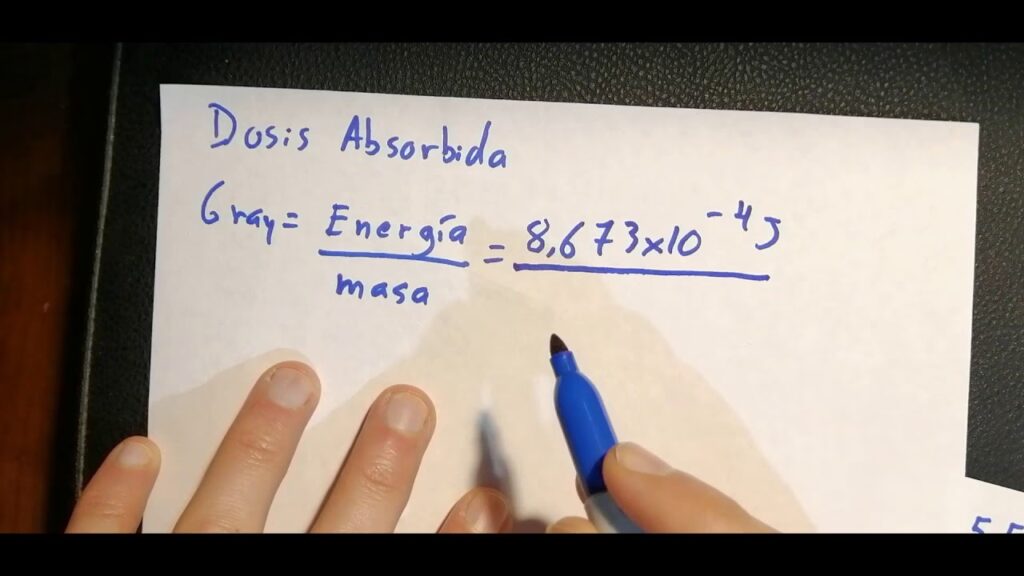 Dosis Absorbida
Gray = Energía / masa = 8,673x10^-4 J